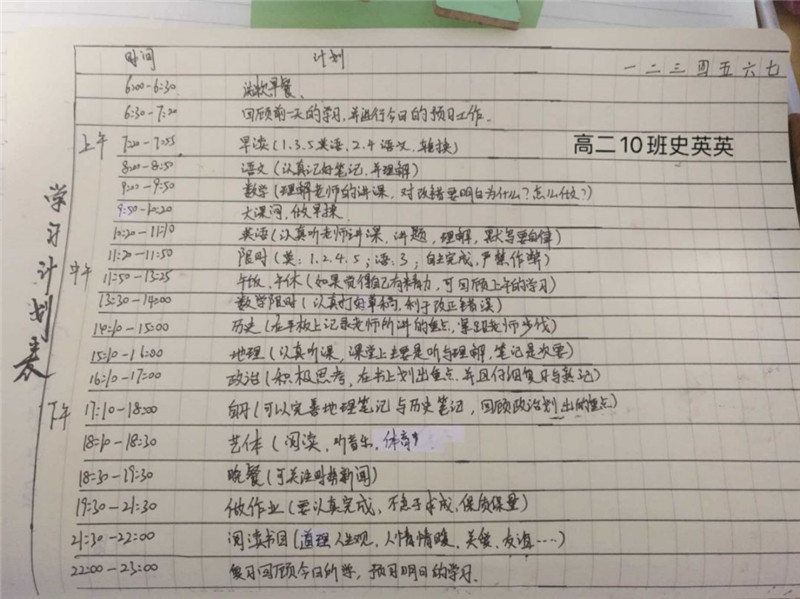 时间 计划 一二三四五六七
6:00-6:30 洗漱早餐、
6:30-7:20 回顾前一天的学习,并进行今日的预习工作.
上午 7:20-7:55 早读(1.3.5英语,2.4语文,轮换)
高二10班史英英
8:00-8:50 语文(认真记好笔记,并理解)
9:00-9:50 数学(理解老师的讲课,对改错要明白为什么?怎么做?)
9:50-10:20 大课间,做早操
10:20-11:10 英语(认真听老师讲课,讲题,理解,默写要自律)
11:20-11:50 限时(英:1.2.4.5;语:3;自主完成,严禁作弊)
中午 11:50-13:25 午饭,午休(如果觉得自己有精力,可回顾上午的学习)
13:30-14:00 数学限时(认真打好草稿,利于改正错误)
14:10-15:00 历史(在平板上记录老师所讲的重点,紧跟老师步伐)
15:10-16:00 地理(认真听课,课堂上主要是听与理解,笔记是次要)
16:10-17:00 政治(积极思考,在书上划出重点.并且仔细复习与熟记)
下午 17:10-18:00 自习(可以完善地理笔记与历史笔记,回顾政治划出的重点)
18:10-18:30 艺体(阅读,听音乐,体育
18:30-19:30 晚餐(可关注时楠新闻)
19:30-21:30 做作业(要认真完成,不急于求成,保质保量)
21:30-22:00 阅读书目(道理人生观,人情情暖,关爱,友谊……)
22:00-23:00 复习回顾今日所学,预习明日的学习.
学习计划表